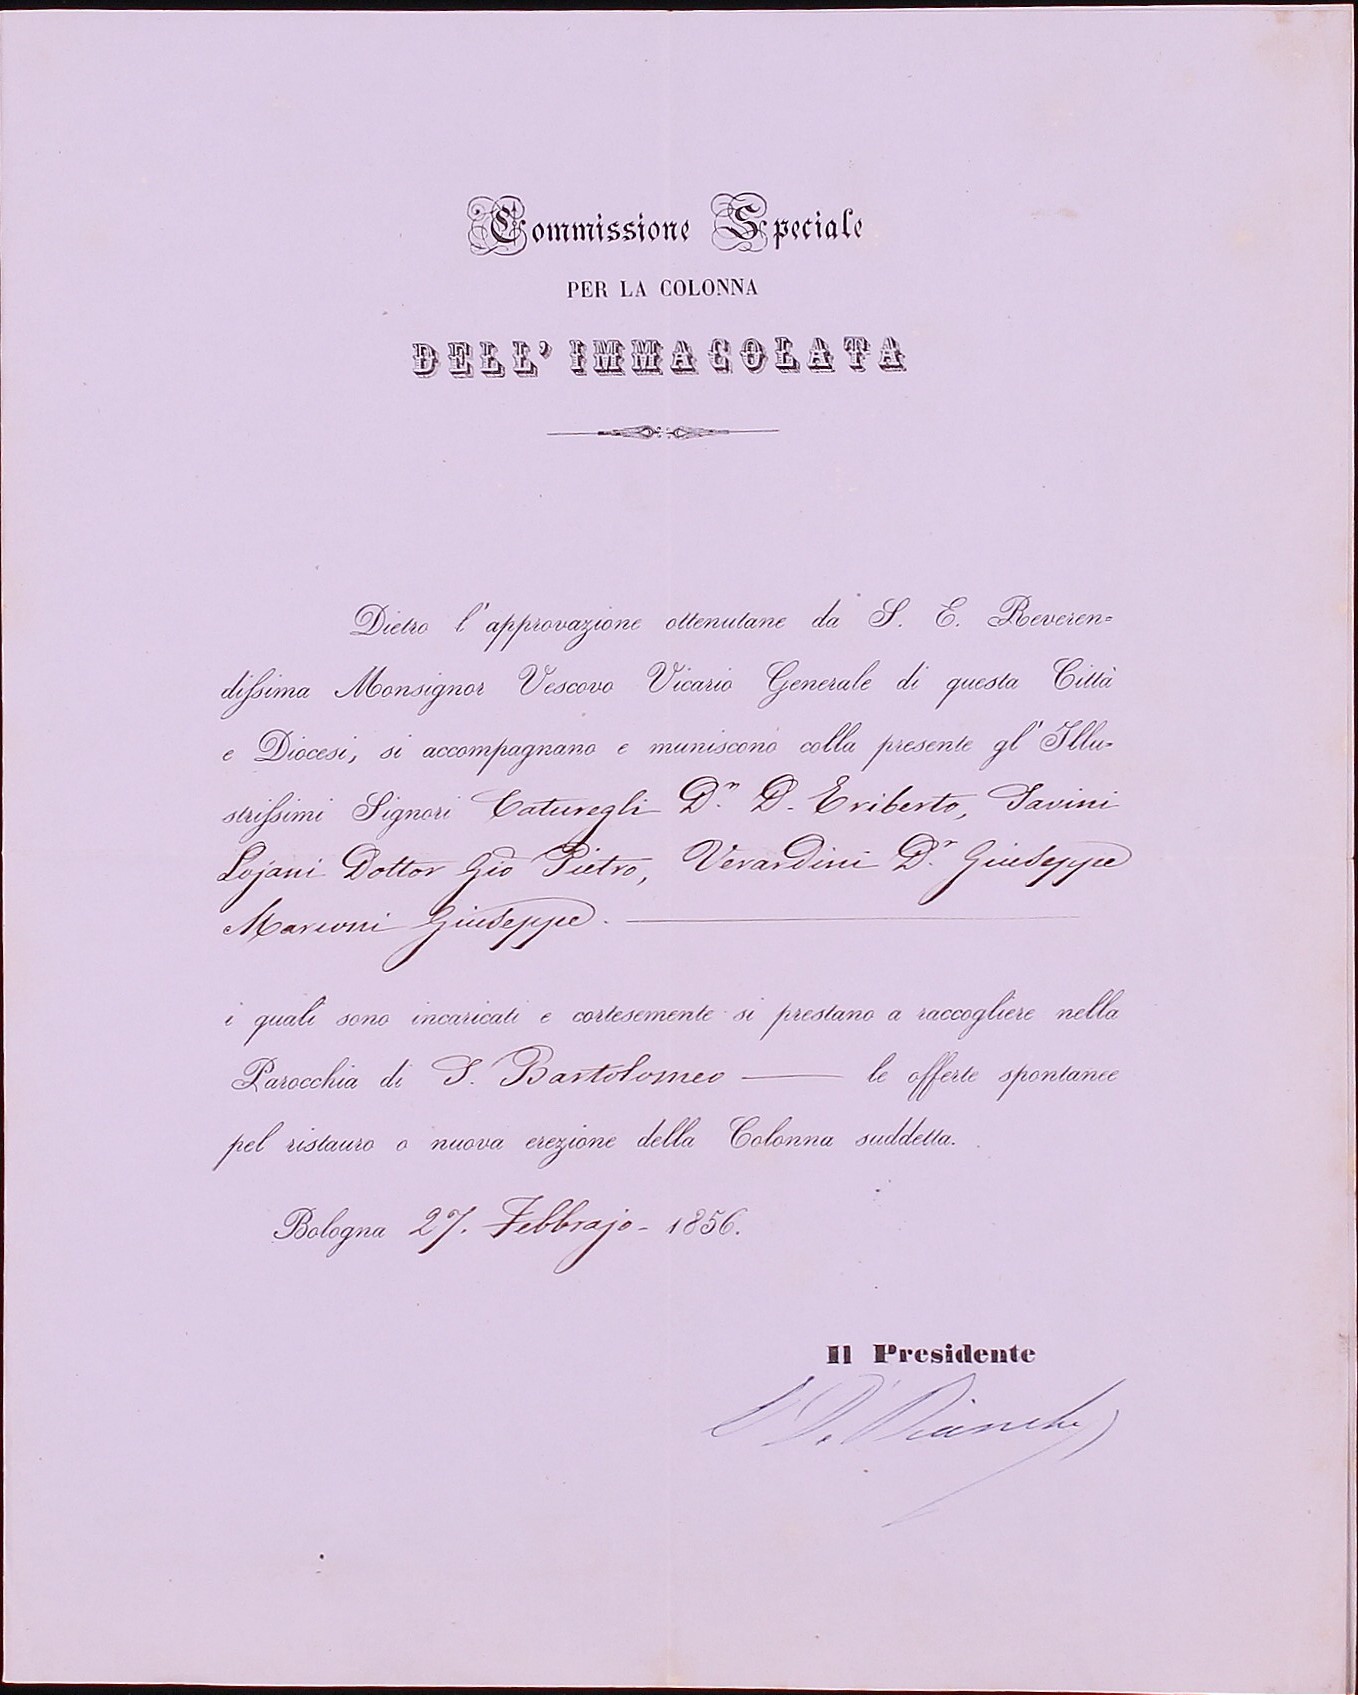 Commissione Speciale
PER LA COLONNA
DELL' IMMACOLATA
Dietro l'approvazione ottenutane da S. E. Reveren=
dissima Monsignor Vescovo Vicario Generale di questa Città
e Diocesi, si accompagnano e muniscono colla presente gl'Illu=
strissimi Signori Caturegli D.n D. Eriberto, Savini
Lojani Dottor Gio Pietro, Verardini D.r Giuseppe
Marconi Giuseppe.
i quali sono incaricati e cortesemente si prestano a raccogliere nella
Parocchia di S. Bartolomeo le offerte spontanee
pel ristauro o nuova erezione della Colonna suddetta.
Bologna 27. Febbrajo - 1856.
Il Presidente
Bianchi